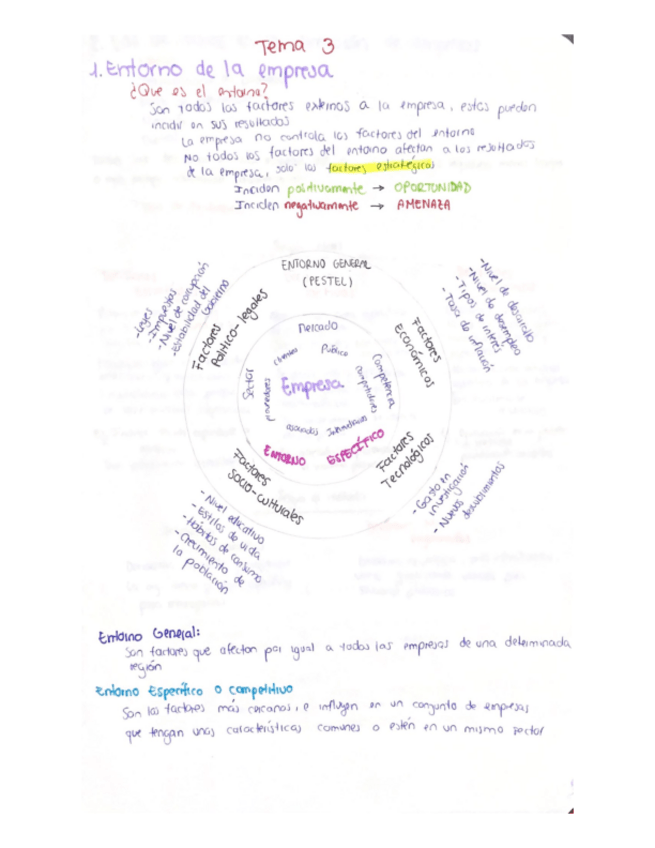 Tema 3
1. Entorno de la empresa
¿Que es el entorno?
Son todos los factores externos a la empresa, estos pueden
incidir en sus resultados
La empresa no controla los factores del entorno
No todos los factores del entorno afectan a los resultados
de la empresa, solo los factores estratégicos
Inciden positivamente → OPORTUNIDAD
Inciden negativamente → AMENAZA
ENTORNO GENERAL
(PESTEL)
- Leyes
- Impuestos
- Nivel de corrupción
- Estabilidad del
Gobierno
Factores
Político-legales
- Nivel de desarrollo
- Nivel de desempleo
- Tipos de interés
- Tasa de inflación
Factores
económicos
Mercado
Sector
Competencia
clientes
Público
proveedores
competidores
asociados
Intermediarios
Empresa
ENTORNO ESPECÍFICO
Factores
socio-culturales
- Nivel educativo
- Estilos de vida
- Hábitos de consumo
- Crecimiento de
la población
Factores
Tecnológicos
- Gasto en
investigación
- Nuevos
descubrimientos
Entorno General:
Son factores que afectan por igual a todas las empresas de una determinada
región
Entorno Específico o competitivo
Son los factores más cercanos, e influyen en un conjunto de empresas
que tengan unas características comunes o estén en un mismo sector